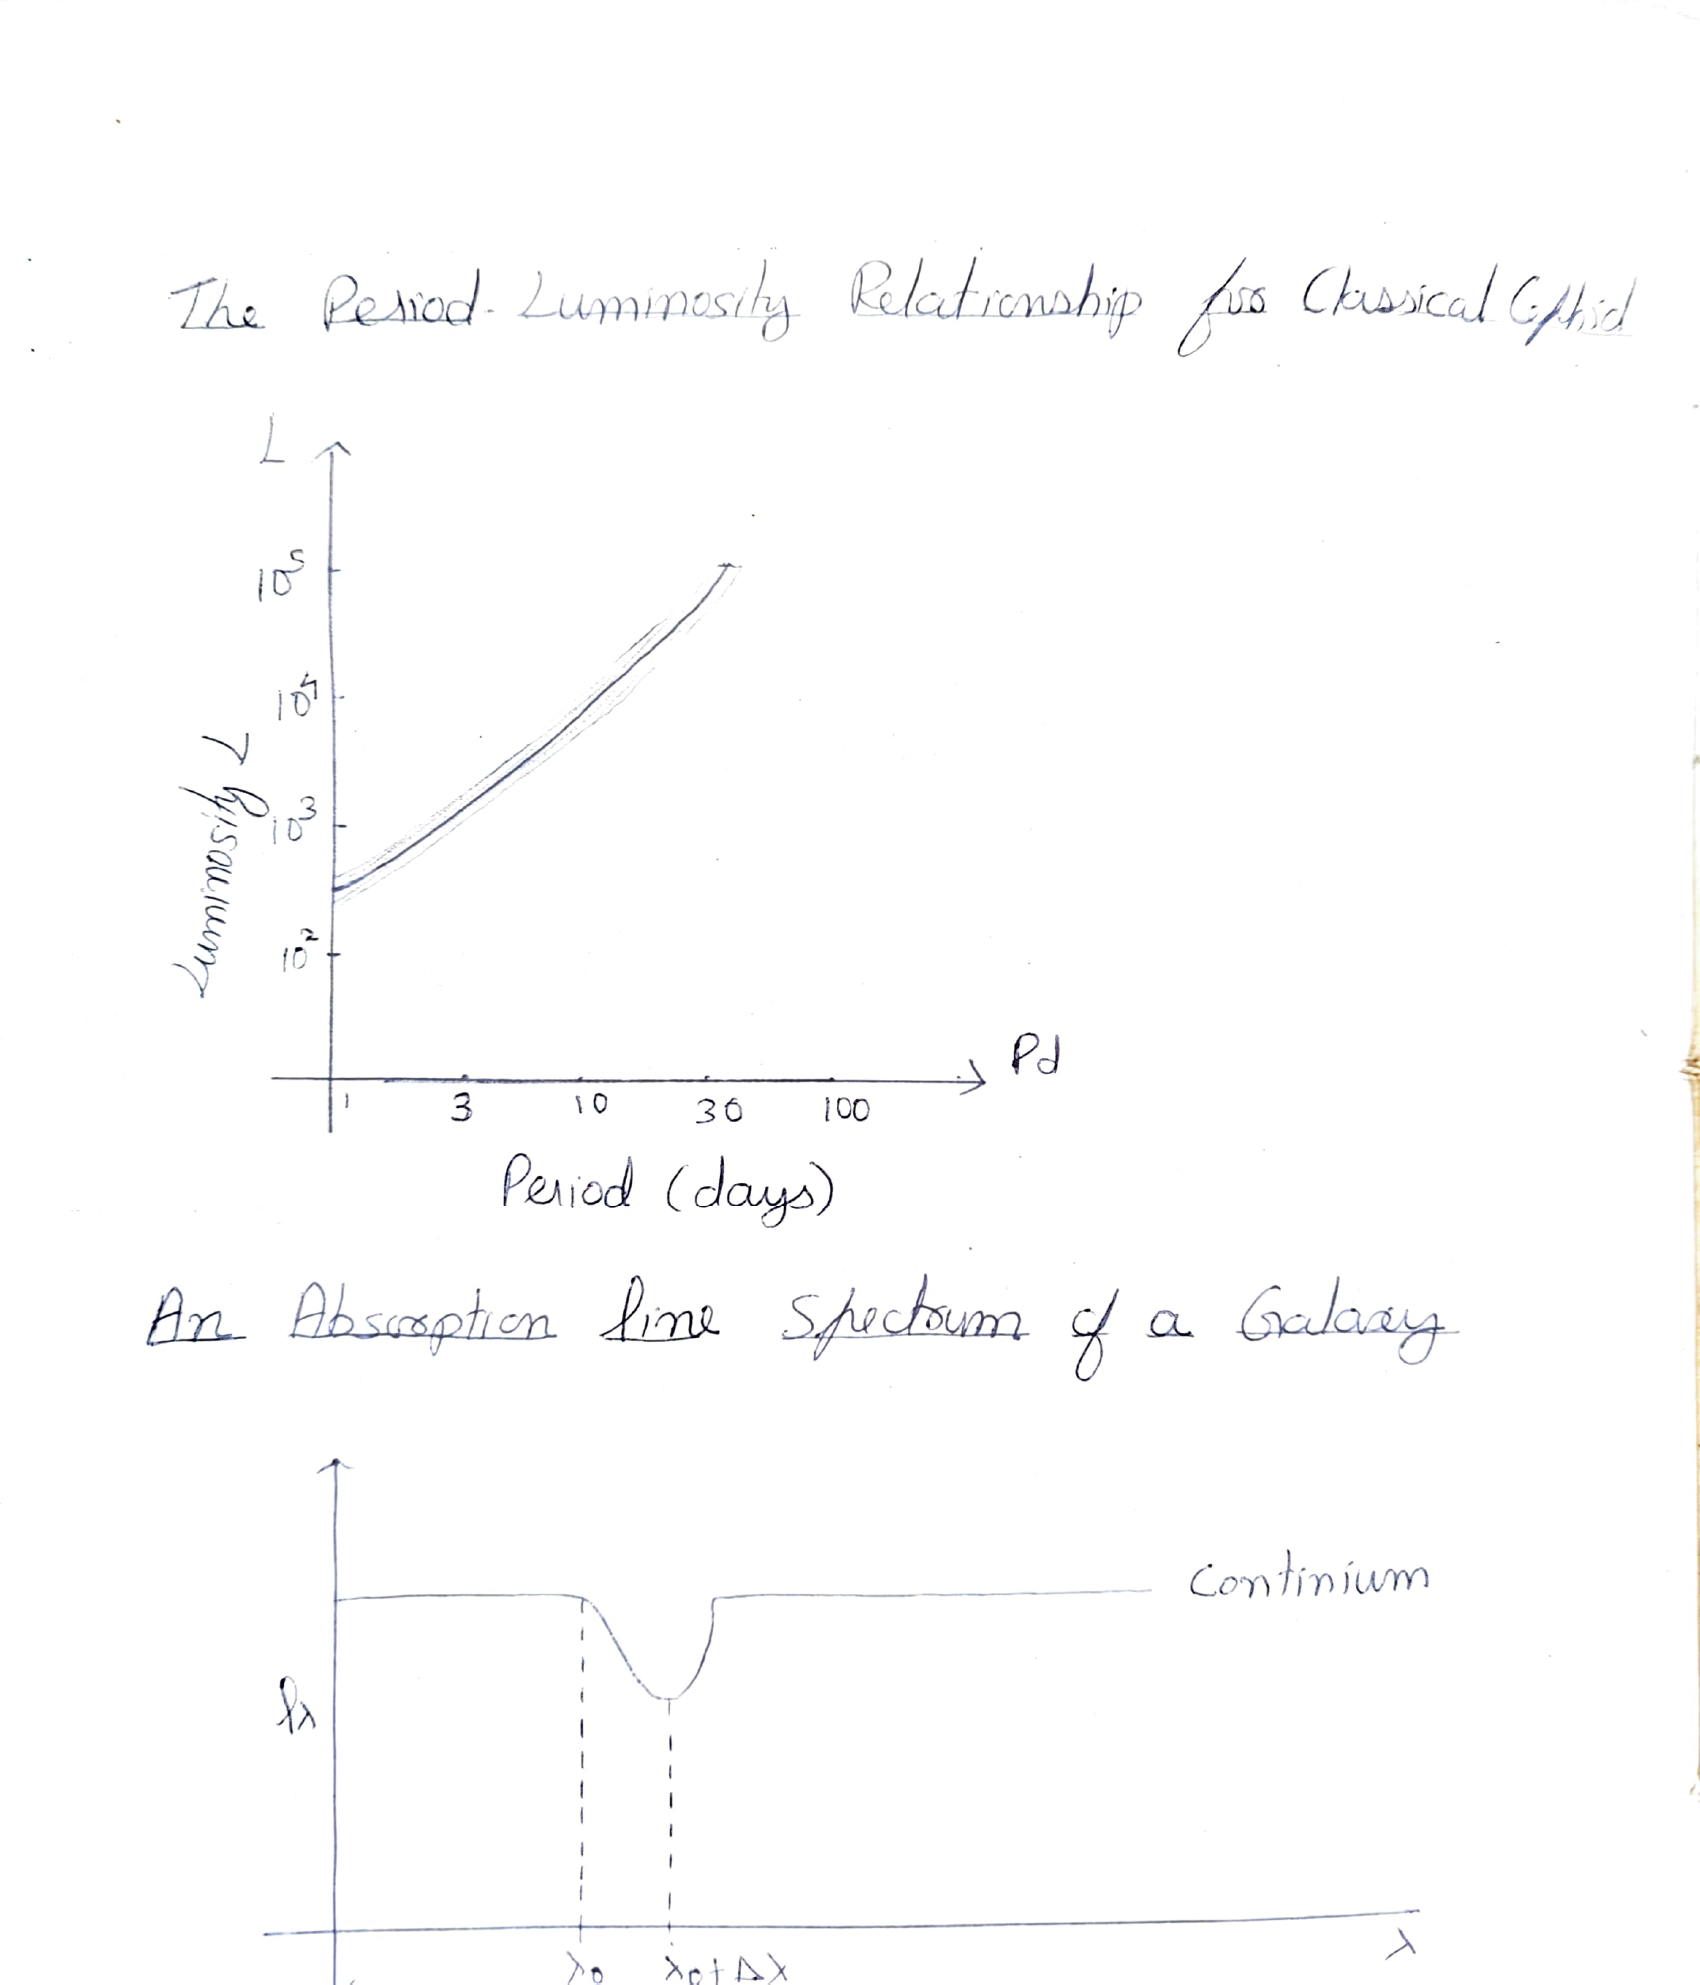 The Period-Luminosity Relationship for Classical Cephid
L
10⁵
10⁴
10³
10²
Luminosity L
1 3 10 30 100
Pd
Period (days)
An Absorption line Spectrum of a Galaxy
Continium
fλ
λ
λ0 λ0+Δλ